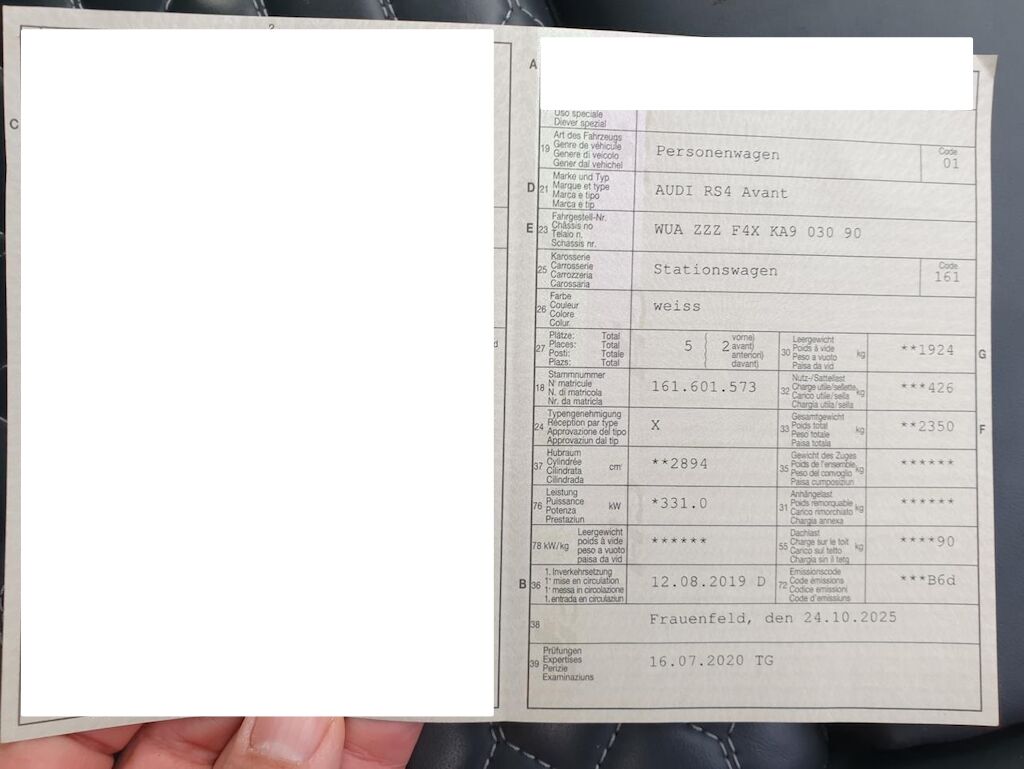 2
C
A
Uso speciale
Diever spezial
19 Art des Fahrzeugs
Genre de véhicule
Genere di veicolo
Gener dal vehichel
Personenwagen
Code
01
D 21 Marke und Typ
Marque et type
Marca e tipo
Marca e tip
AUDI RS4 Avant
E 23 Fahrgestell-Nr.
Châssis no
Telaio n.
Schassis nr.
WUA ZZZ F4X KA9 030 90
25 Karosserie
Carrosserie
Carrozzeria
Carossaria
Stationswagen
Code
161
26 Farbe
Couleur
Colore
Colur
weiss
27 Plätze: Total
Places: Total
Posti: Totale
Plazs: Total
5 ( 2 vorne)
avant)
anteriori)
davant)
30 Leergewicht
Poids à vide
Peso a vuoto
Paisa da vid
kg
**1924
G
18 Stammnummer
N° matricule
N. di matricola
Nr. da matricla
161.601.573
32 Nutz-/Sattellast
Charge utile/sellette
Carico utile/sella
Chargia utila/sella
kg
***426
24 Typengenehmigung
Réception par type
Approvazione del tipo
Approvaziun dal tip
X
33 Gesamtgewicht
Poids total
Peso totale
Paisa totala
kg
**2350
F
37 Hubraum
Cylindrée
Cilindrata
Cilindrada
cm³
**2894
35 Gewicht des Zuges
Poids de l'ensemble
Peso del convoglio
Paisa cumposiziun
kg
******
76 Leistung
Puissance
Potenza
Prestaziun
kW
*331.0
31 Anhängelast
Poids remorquable
Carico rimorchiato
Chargia annexa
kg
******
78 kW/kg Leergewicht
poids à vide
peso a vuoto
paisa da vid
******
55 Dachlast
Charge sur le toit
Carico sul tetto
Chargia sin il tetg
kg
****90
B 36 1. Inverkehrsetzung
1re mise en circulation
1a messa in circolazione
1. entrada en circulaziun
12.08.2019 D
72 Emissionscode
Code émissions
Codice emissioni
Code d'emissiuns
***B6d
38
Frauenfeld, den 24.10.2025
39 Prüfungen
Expertises
Perizie
Examinaziuns
16.07.2020 TG
d